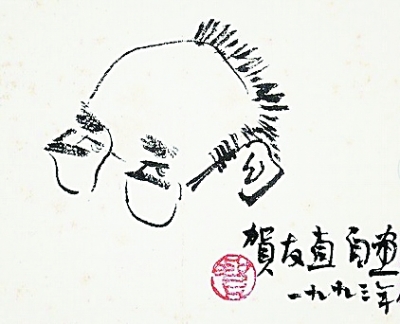 賀友直自畫
一九九三年